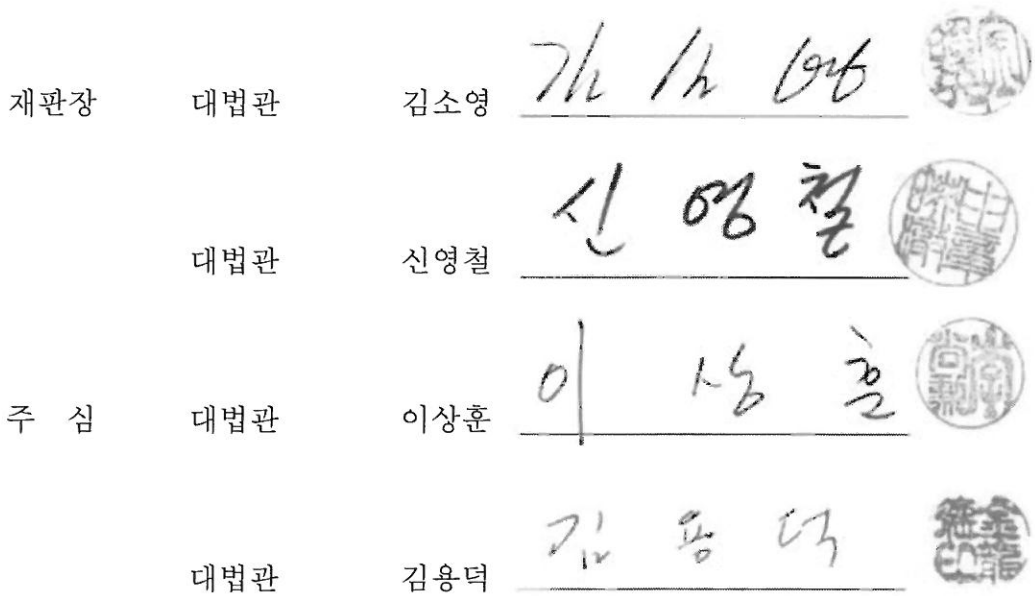 재판장 대법관 김소영 김소영
대법관 신영철 신영철
주 심 대법관 이상훈 이상훈
대법관 김용덕 김용덕